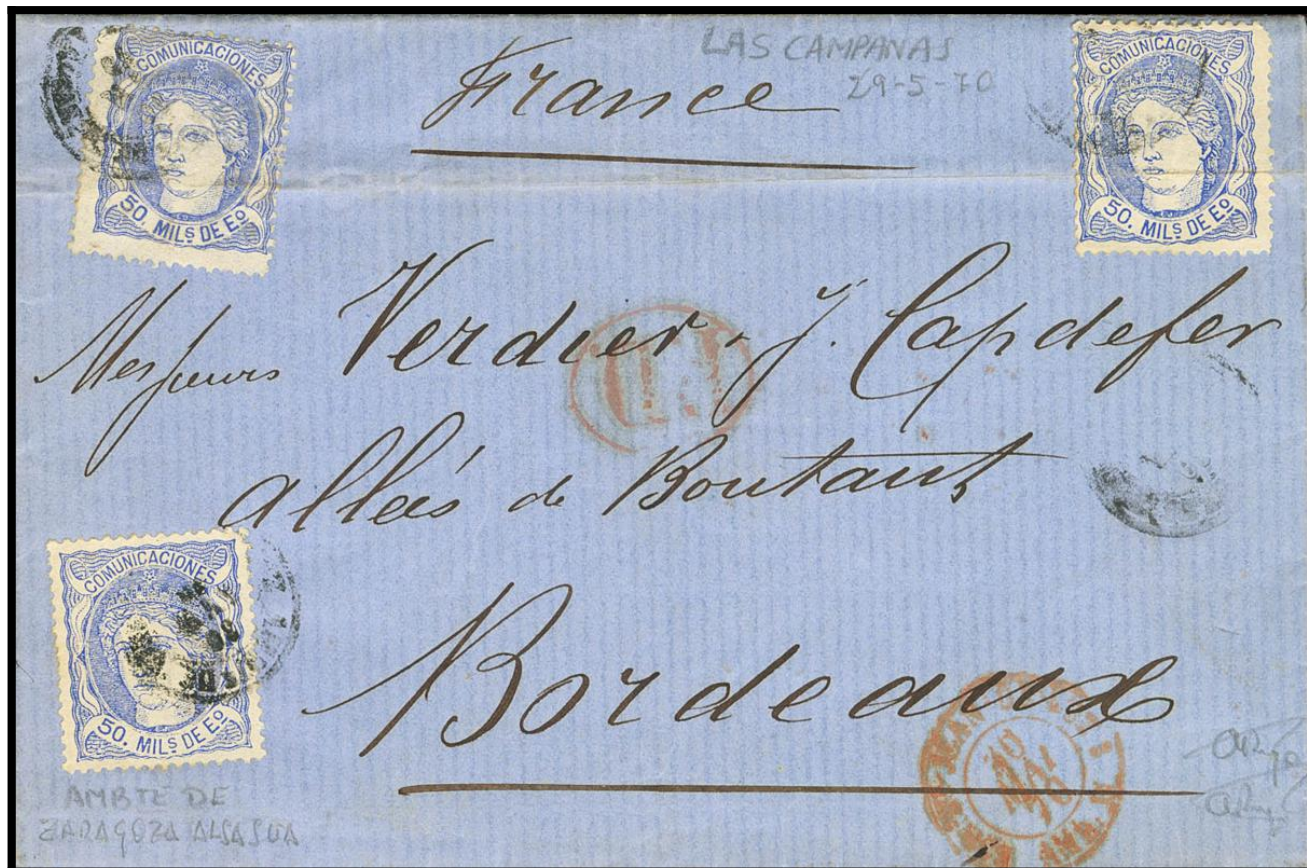 COMUNICACIONES
50. MILS DE Eº
LAS CAMPANAS
29-5-70
France
COMUNICACIONES
50. MILS DE Eº
Messieurs Verdier. J. Capdefer
P.D.
Allées de Boutaut
COMUNICACIONES
50. MILS DE Eº
Bordeaux
MAI
70
AMBTE DE
ZARAGOZA ALSASUA